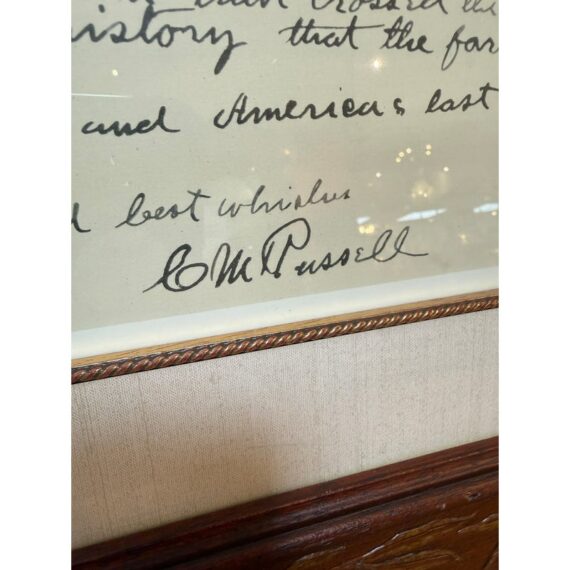 crossed the
history that the far
and America s last
best whishes
C M Russell